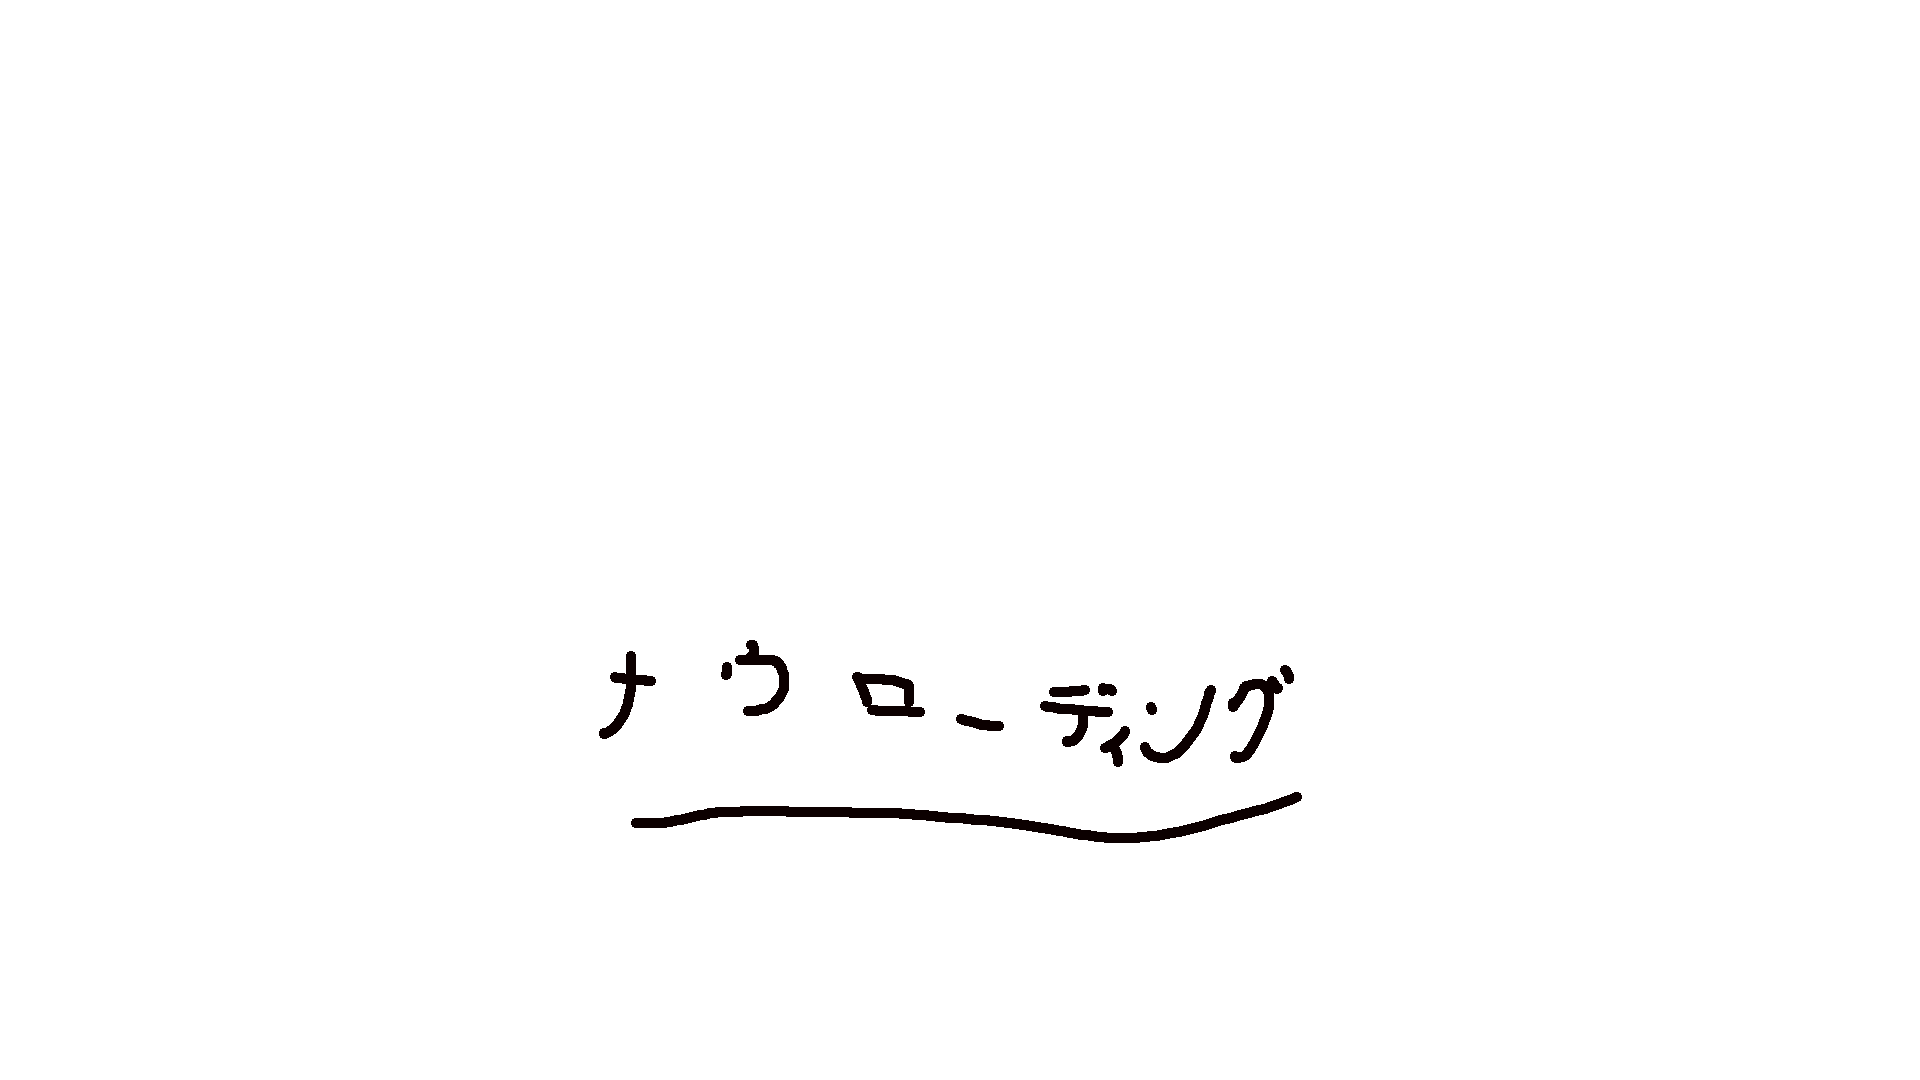 ナウローディング